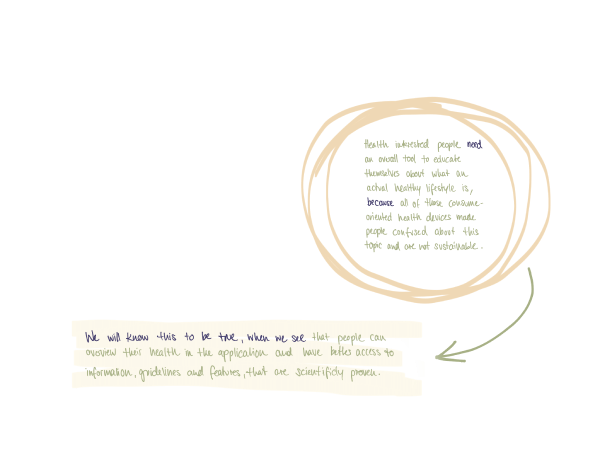 Health interested people need
an overall tool to educate
themselves about what an
actual healthy lifestyle is,
because all of those consume-
oriented health devices made
people confused about this
topic and are not sustainable.
We will know this to be true, when we see that people can
overview their health in the application and have better access to
information, guidelines and features, that are scientificly proven.